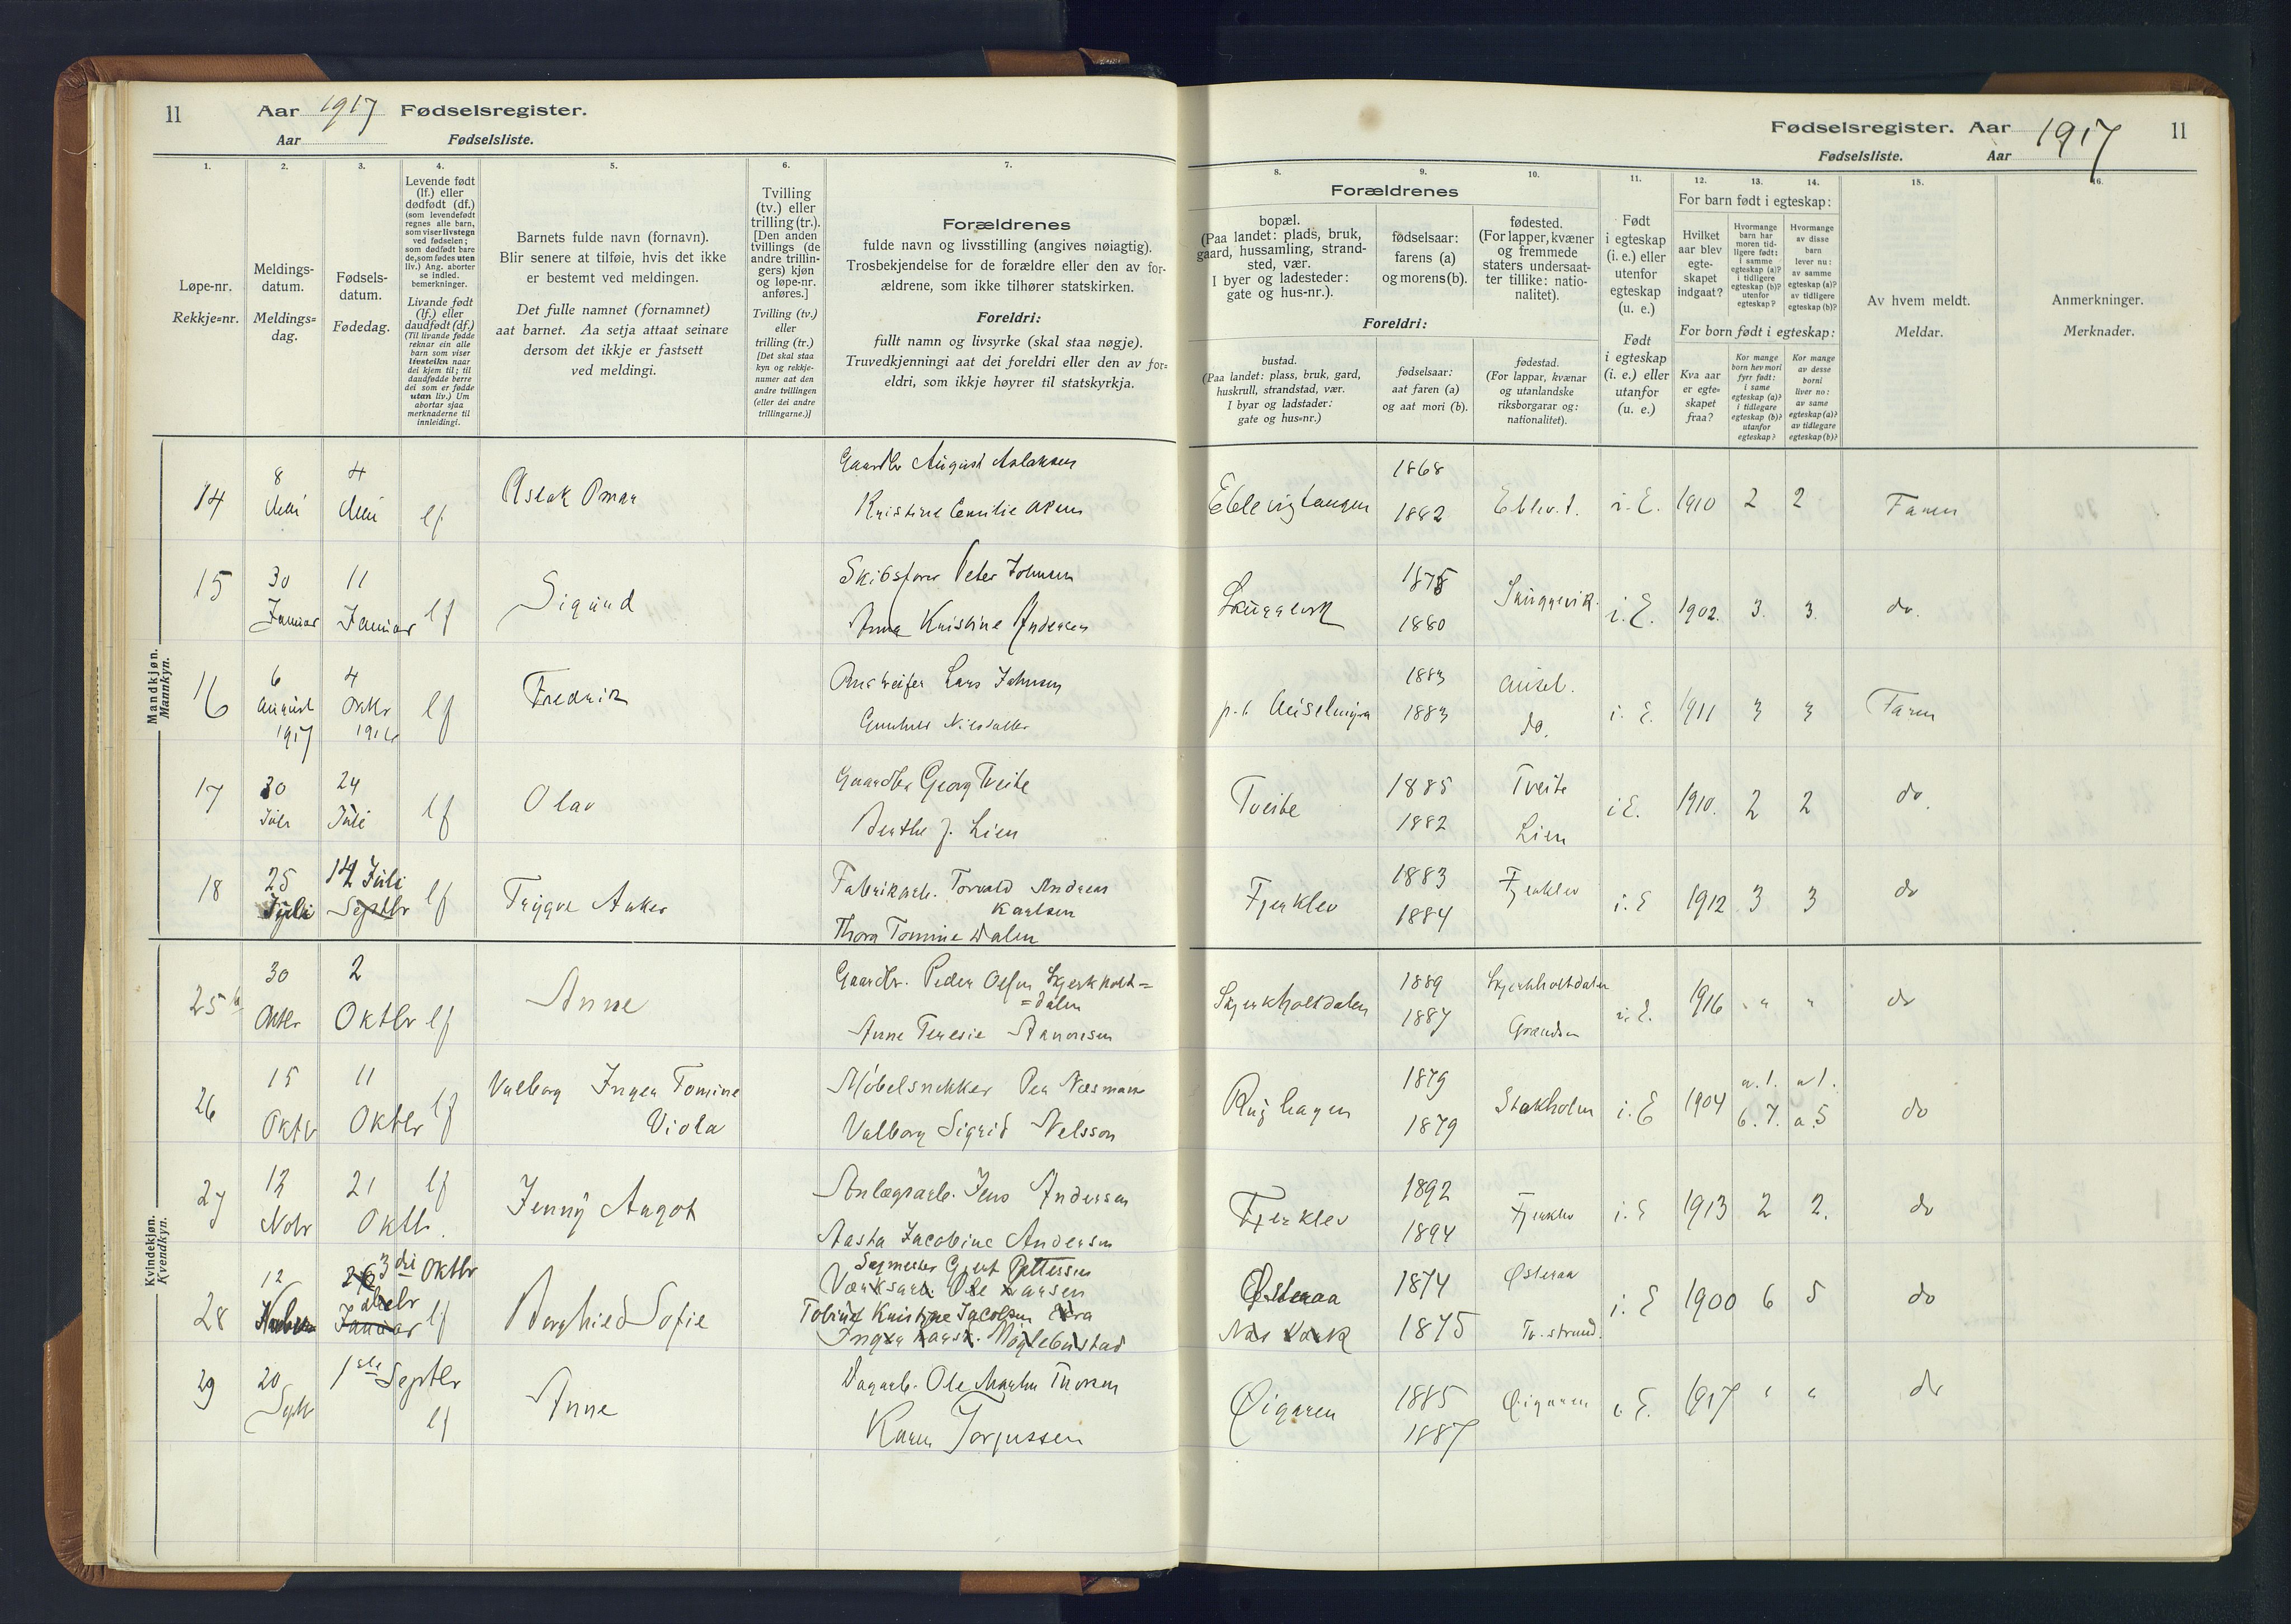 11 Aar 1917 Fødselsregister.
Aar Fødselsliste.
1. 2. 3. 4. 5. 6. 7.
Løpe-nr.
Rekkje=nr.
Meldings-
datum.
Meldings=
dag.
Fødsels-
datum.
Fødedag.
Levende født
(lf.) eller
dødfødt (df.)
(som levendefødt
regnes alle barn,
som viser livstegn
ved fødselen;
som dødfødt bare
de, som fødes uten
liv.) Ang. aborter
se indled.
bemerkninger.
Livande født
(lf.) eller
daudfødt (df.)
(Til livande fødde
reknar ein alle
barn som viser
livsteikn naar
dei kjem til; til
daudfødde berre
dei som er fødde
utan liv.) Um
abortar sjaa
merknaderne til
innleidingi.
Barnets fulde navn (fornavn).
Blir senere at tilføie, hvis det ikke
er bestemt ved meldingen.
Det fulle namnet (fornamnet)
aat barnet. Aa setja attaat seinare
dersom det ikkje er fastsett
ved meldingi.
Tvilling
(tv.) eller
trilling (tr.).
[Den anden
tvillings (de
andre trillin-
gers) kjøn
og løpe-nr.
anføres.]
Tvilling (tv.)
eller
trilling (tr.)
[Det skal staa
kyn og rekkje-
numer aat den
andre tvillingen
(eller dei andre
trillingarne.)]
Forældrenes
fulde navn og livsstilling (angives nøiagtig).
Trosbekjendelse for de forældre eller den av for-
ældrene, som ikke tilhører statskirken.
Foreldri:
fullt namn og livsyrke (skal staa nøgje).
Truvedkjenningi aat dei foreldri eller den av for=
eldri, som ikkje høyrer til statskyrkja.
Mandkjøn.
Mannkyn.
14 8 Mai 4 Mai lf Aslak Omar
Gaardbr August Aslaksen
Kristine Emilie
15 30 Januar 11 Januar lf Sigurd
Skibsfører Peter Johnsen
Anna Kristine Andersen
16 6 August 1917 4 Oktbr 1916 lf Fredrik
Lars Johnsen
Gunhild Nilsdatter
17 30 Juli 24 Juli lf Olav
Gaardbr Georg Tveite
Berthe J. Lien
18 25 Juli 14 Juli Septbr lf Trygve Anker
Fabrikarb. Torvald Andreas
Karlsen
Thora Tomine Dalen
Kvindekjøn.
Kvendkyn.
25 b 30 Oktbr 2 Oktbr lf Anne
Gaardbr. Peder Olsen Skjerkholt=
=dalen
Anne Teresie Aanonsen
26 15 Oktbr 11 Oktbr lf Valborg Inger Tomine
Viola
Møbelsnekker Per Næsman
Valborg Sigrid Nelsson
27 12 Nobr 21 Oktb. lf Jenny Aagot
Anlægsarb. Jens Andersen
Aasta Jacobine Andersen
28 12 26 3die Oktbr Januar lf Borghild Sofie
Sagmester Gjert Pettersen
Værksarb. Ole Larsen
Tobine Kristine Jacobsen
29 20 Septr 1ste Septbr lf Anne
Dagarb. Ole Martin Thorsen
Karen Torjussen
Fødselsregister. Aar 1917 11
Fødselsliste. Aar
8. 9. 10. 11. 12. 13. 14. 15. 16.
Forældrenes
bopæl.
(Paa landet: plads, bruk,
gaard, hussamling, strand-
sted, vær.
I byer og ladesteder:
gate og hus-nr.).
fødselsaar:
farens (a)
og morens (b).
fødested.
(For lapper, kvæner
og fremmede
staters undersaat-
ter tillike: natio-
nalitet).
Foreldri:
bustad.
(Paa landet: plass, bruk, gard,
huskrull, strandstad, vær.
I byar og ladstader:
gate og hus=nr.)
fødselsaar:
aat faren (a)
og aat mori (b).
fødestad.
(For lappar, kvænar
og utanlandske
riksborgarar og:
nationalitet).
Født
i egteskap
(i. e.) eller
utenfor
egteskap
(u. e.)
Født
i egteskap
(i. e.) eller
utanfor
(u. e.)
For barn født i egteskap:
Hvilket
aar blev
egte-
skapet
indgaat?
Hvormange
barn har
moren tid-
ligere født:
i samme
egteskap (a)?
i tidligere
egteskap (b)?
utenfor
egteskap?
Hvormange
av disse
barn
lever nu:
av samme
egteskap (a)?
av tidligere
egteskap (b)?
For born født i egteskap:
Kva aar
er egte=
skapet
fraa?
Kor mange
born hev mori
fyrr født:
i same
egteskap (a)?
i tidlegare
egteskap (b)?
utanfor
egteskap?
Kor mange
av desse
borni
liver no:
av same
egteskap (a)?
av tidlegare
egteskap (b)?
Av hvem meldt.
Meldar.
Anmerkninger.
Merknader.
Eblevigtangen 1868 1882 Eblev.t. i. E. 1910 2 2 Faren
Snuggevik 1875 1880 Snuggevik. i. E. 1902. 3. 3. do.
1883 1883 do. i. E. 1911 3 3 Faren
Tveite 1885 1882 Tveite Lien i E. 1910. 2 2 do.
Fjerklev 1883 1884 Fjerklev i. E 1912 3 3 do
Skjerkholtdalen 1889 1887 Skjerkholtdalen i. E. 1916 " " do
1879 1879 Stokholm i. E 1904 6. 7. a. 5 do
Fjerklev 1892 1894 Fjerklev i. E 1913 2 2. do
Østeraa 1874 1875 Østeraa i. E 1900 6 5 do
Øigaren 1885 1887 Øigaren i. E. 1917 " " do